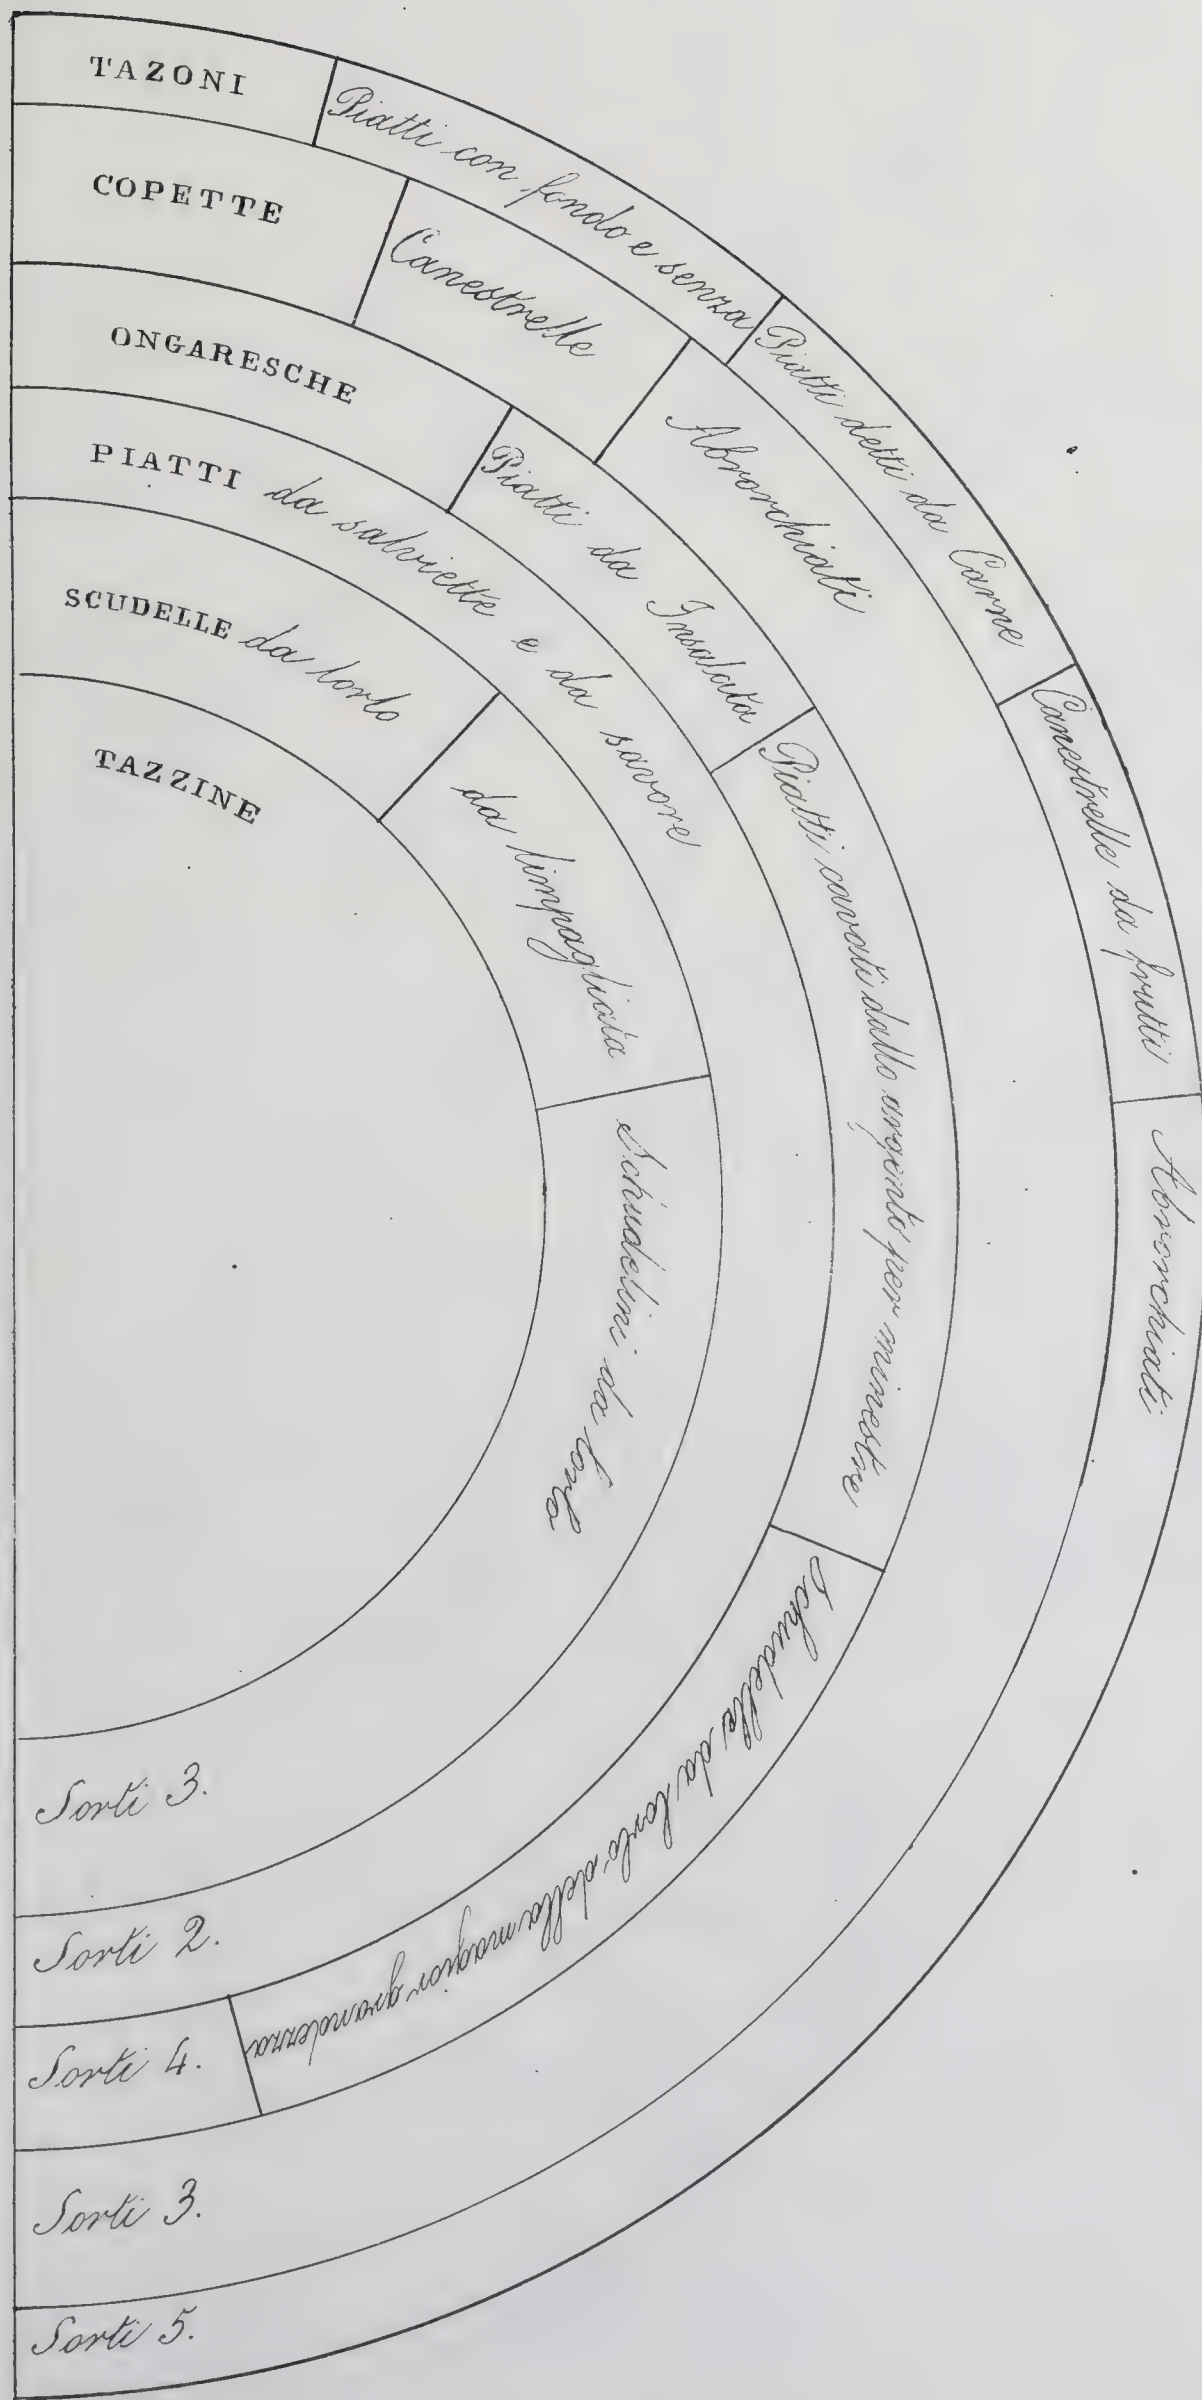 TAZONI
Piatti con fondo e senza
Piatti detti da Carne
Canestrelle da frutti
Abrorchiati
COPETTE
Canestrelle
Abrorchiatti
ONGARESCHE
Piatti da Insalata
Piatti cavati dallo argento per minestre
Schudelle da lorlo della magior grandezza
PIATTI da salviette e da savore
SCUDELLE da lorlo
da limpagliata
Schiudelini da lorlo
TAZZINE
Sorti 3.
Sorti 2.
Sorti 4.
Sorti 3.
Sorti 5.